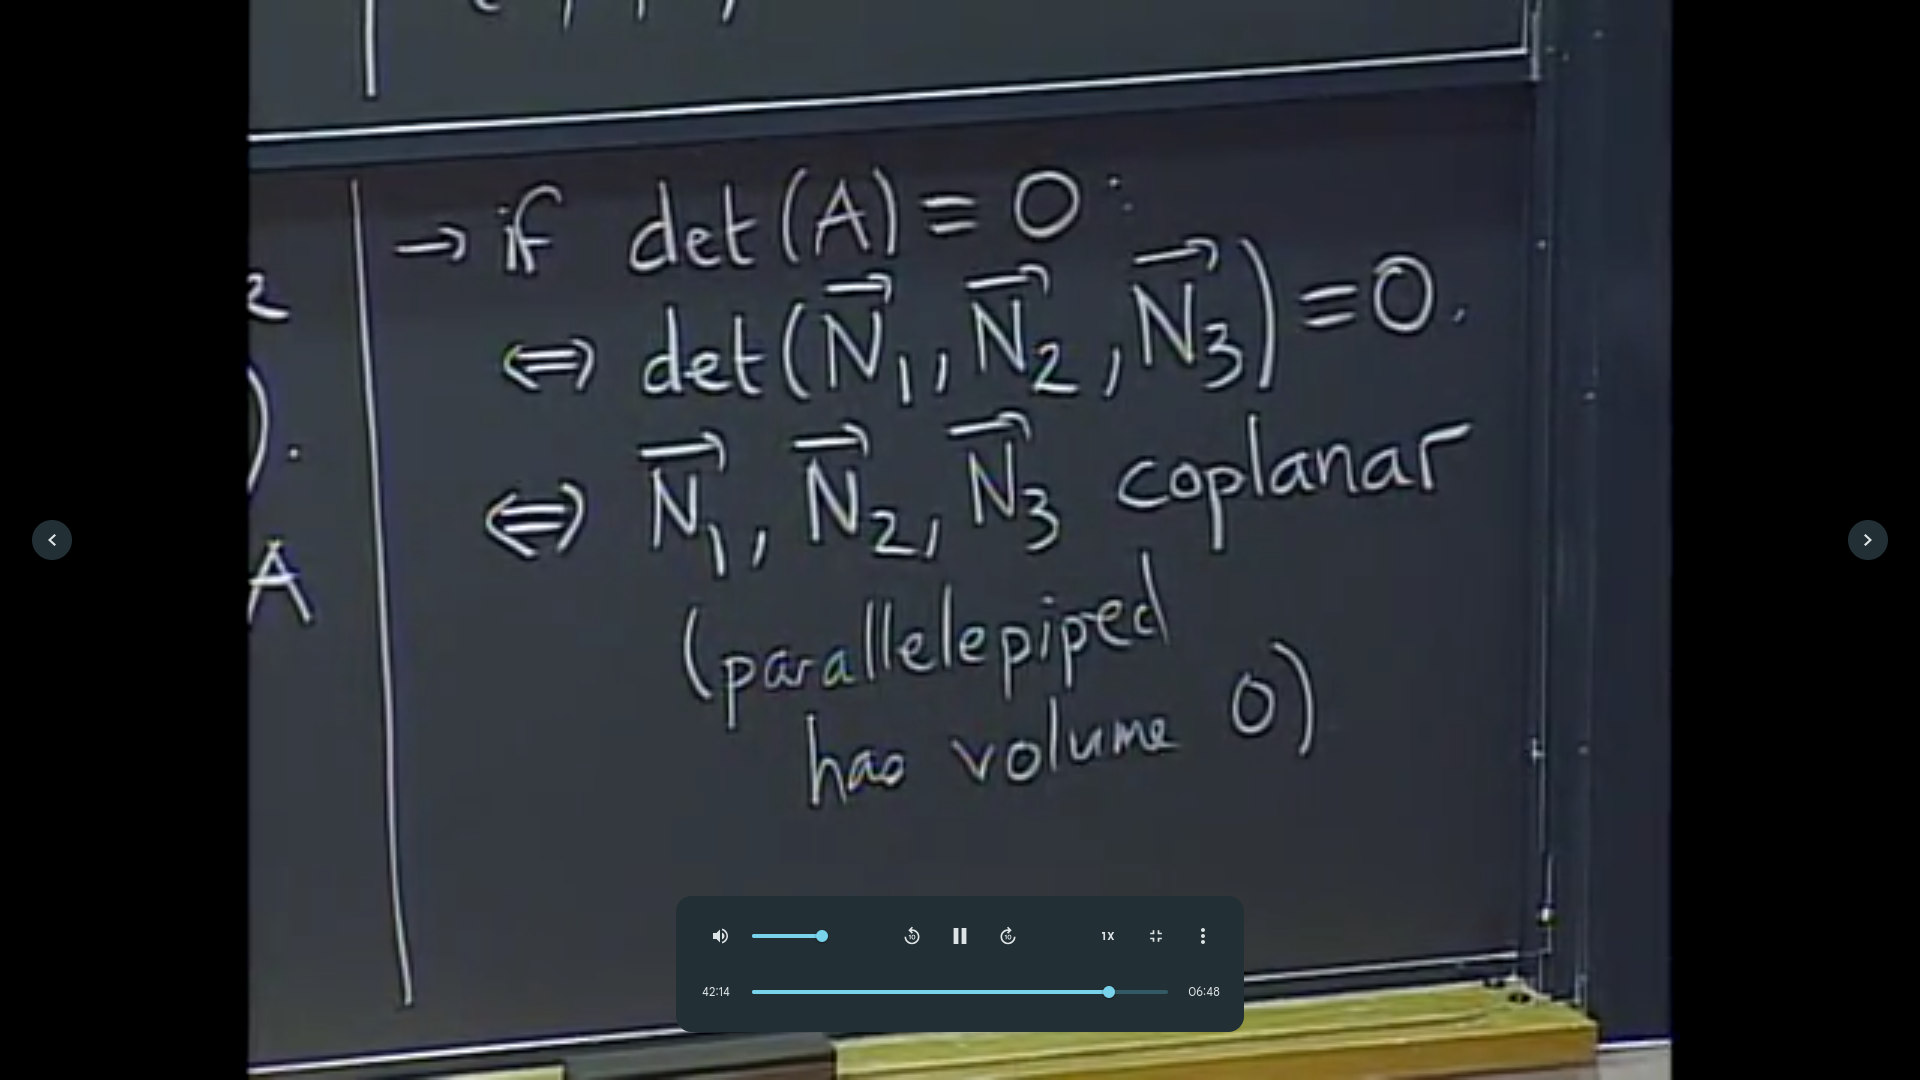 → if det(A) = 0:
2
⇔ det(N⃗₁, N⃗₂, N⃗₃) = 0.
).
⇔ N⃗₁, N⃗₂, N⃗₃ coplanar
A
(parallelepiped
has volume 0)
10
10
1X
42:14
06:48